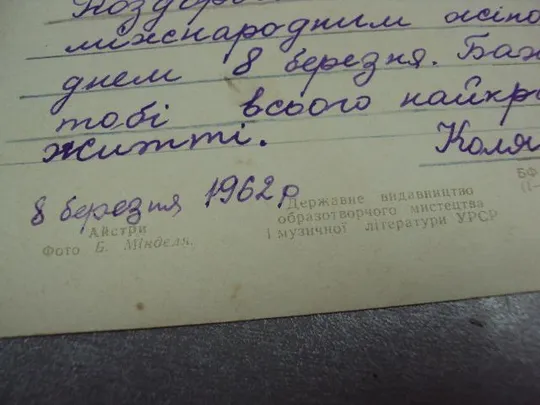 міжнародним
днем 8 березня.
тобі всього
житті. Коля
8 березня 1962 р
Айстри
Фото Б. Мінделя.
Державне видавництво
образотворчого мистецтва
і музичної літератури УРСР
БФ